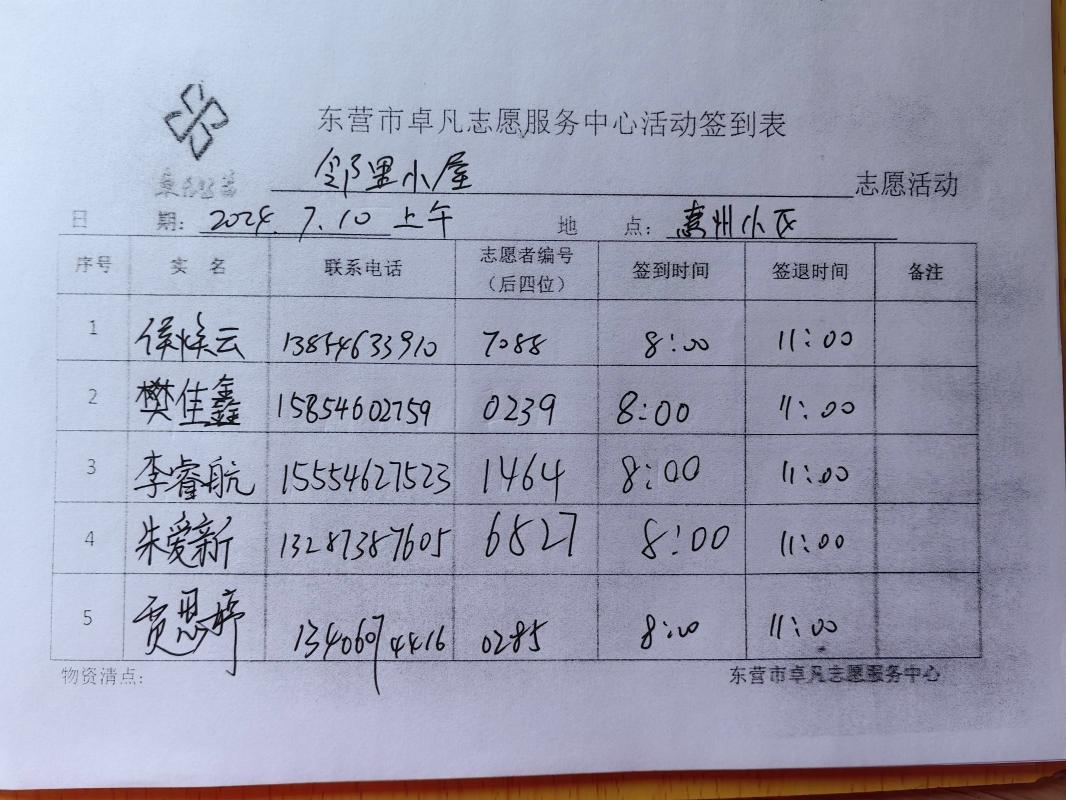 东营市卓凡志愿服务中心活动签到表
邻里小屋 志愿活动
日 期: 2024.7.10 上午 地 点: 惠州小区
序号 实 名 联系电话 志愿者编号（后四位） 签到时间 签退时间 备注
1 侯焕云 13854633910 7088 8:00 11:00
2 樊佳鑫 15854602759 0239 8:00 11:00
3 李睿航 15554627523 1464 8:00 11:00
4 朱爱新 13287387605 6827 8:00 11:00
5 贾思婷 13406074416 0285 8:00 11:00
物资清点: 东营市卓凡志愿服务中心